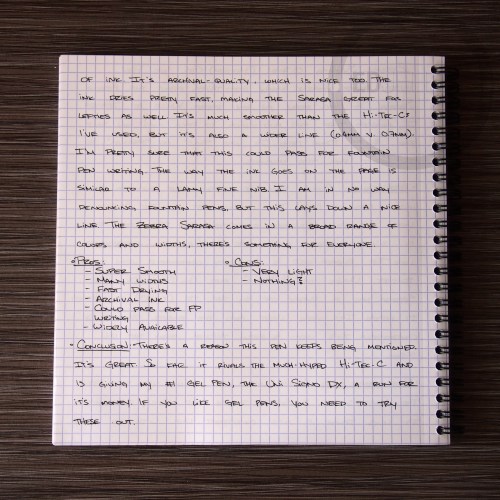 OF INK IT'S ARCHIVAL-QUALITY, WHICH IS NICE TOO. THE
INK DRIES PRETTY FAST, MAKING THE SARASA GREAT FOR
LEFTIES AS WELL. IT'S MUCH SMOOTHER THAN THE HI-TEC-CS
I'VE USED, BUT IT'S ALSO A WIDER LINE (0.4MM V. 0.7MM).
I'M PRETTY SURE THAT THIS COULD PASS FOR FOUNTAIN
PEN WRITING. THE WAY THE INK GOES ON THE PAGE IS
SIMILAR TO A LAMY FINE NIB. I AM IN NO WAY
DENOUNCING FOUNTAIN PENS, BUT THIS LAYS DOWN A NICE
LINE. THE ZEBRA SARASA COMES IN A BROAD RANGE OF
COLORS AND WIDTHS, THERE'S SOMETHING FOR EVERYONE.
• PROS:
- SUPER SMOOTH
- MANY WIDTHS
- FAST DRYING
- ARCHIVAL INK
- COULD PASS FOR FP
WRITING
- WIDELY AVAILABLE
• CONS:
- VERY LIGHT
- NOTHING?
• CONCLUSION: THERE'S A REASON THIS PEN KEEPS BEING MENTIONED.
IT'S GREAT. SO FAR IT RIVALS THE MUCH-HYPED HI-TEC-C AND
IS GIVING MY #1 GEL PEN, THE UNI SIGNO DX, A RUN FOR
IT'S MONEY. IF YOU LIKE GEL PENS, YOU NEED TO TRY
THESE OUT.